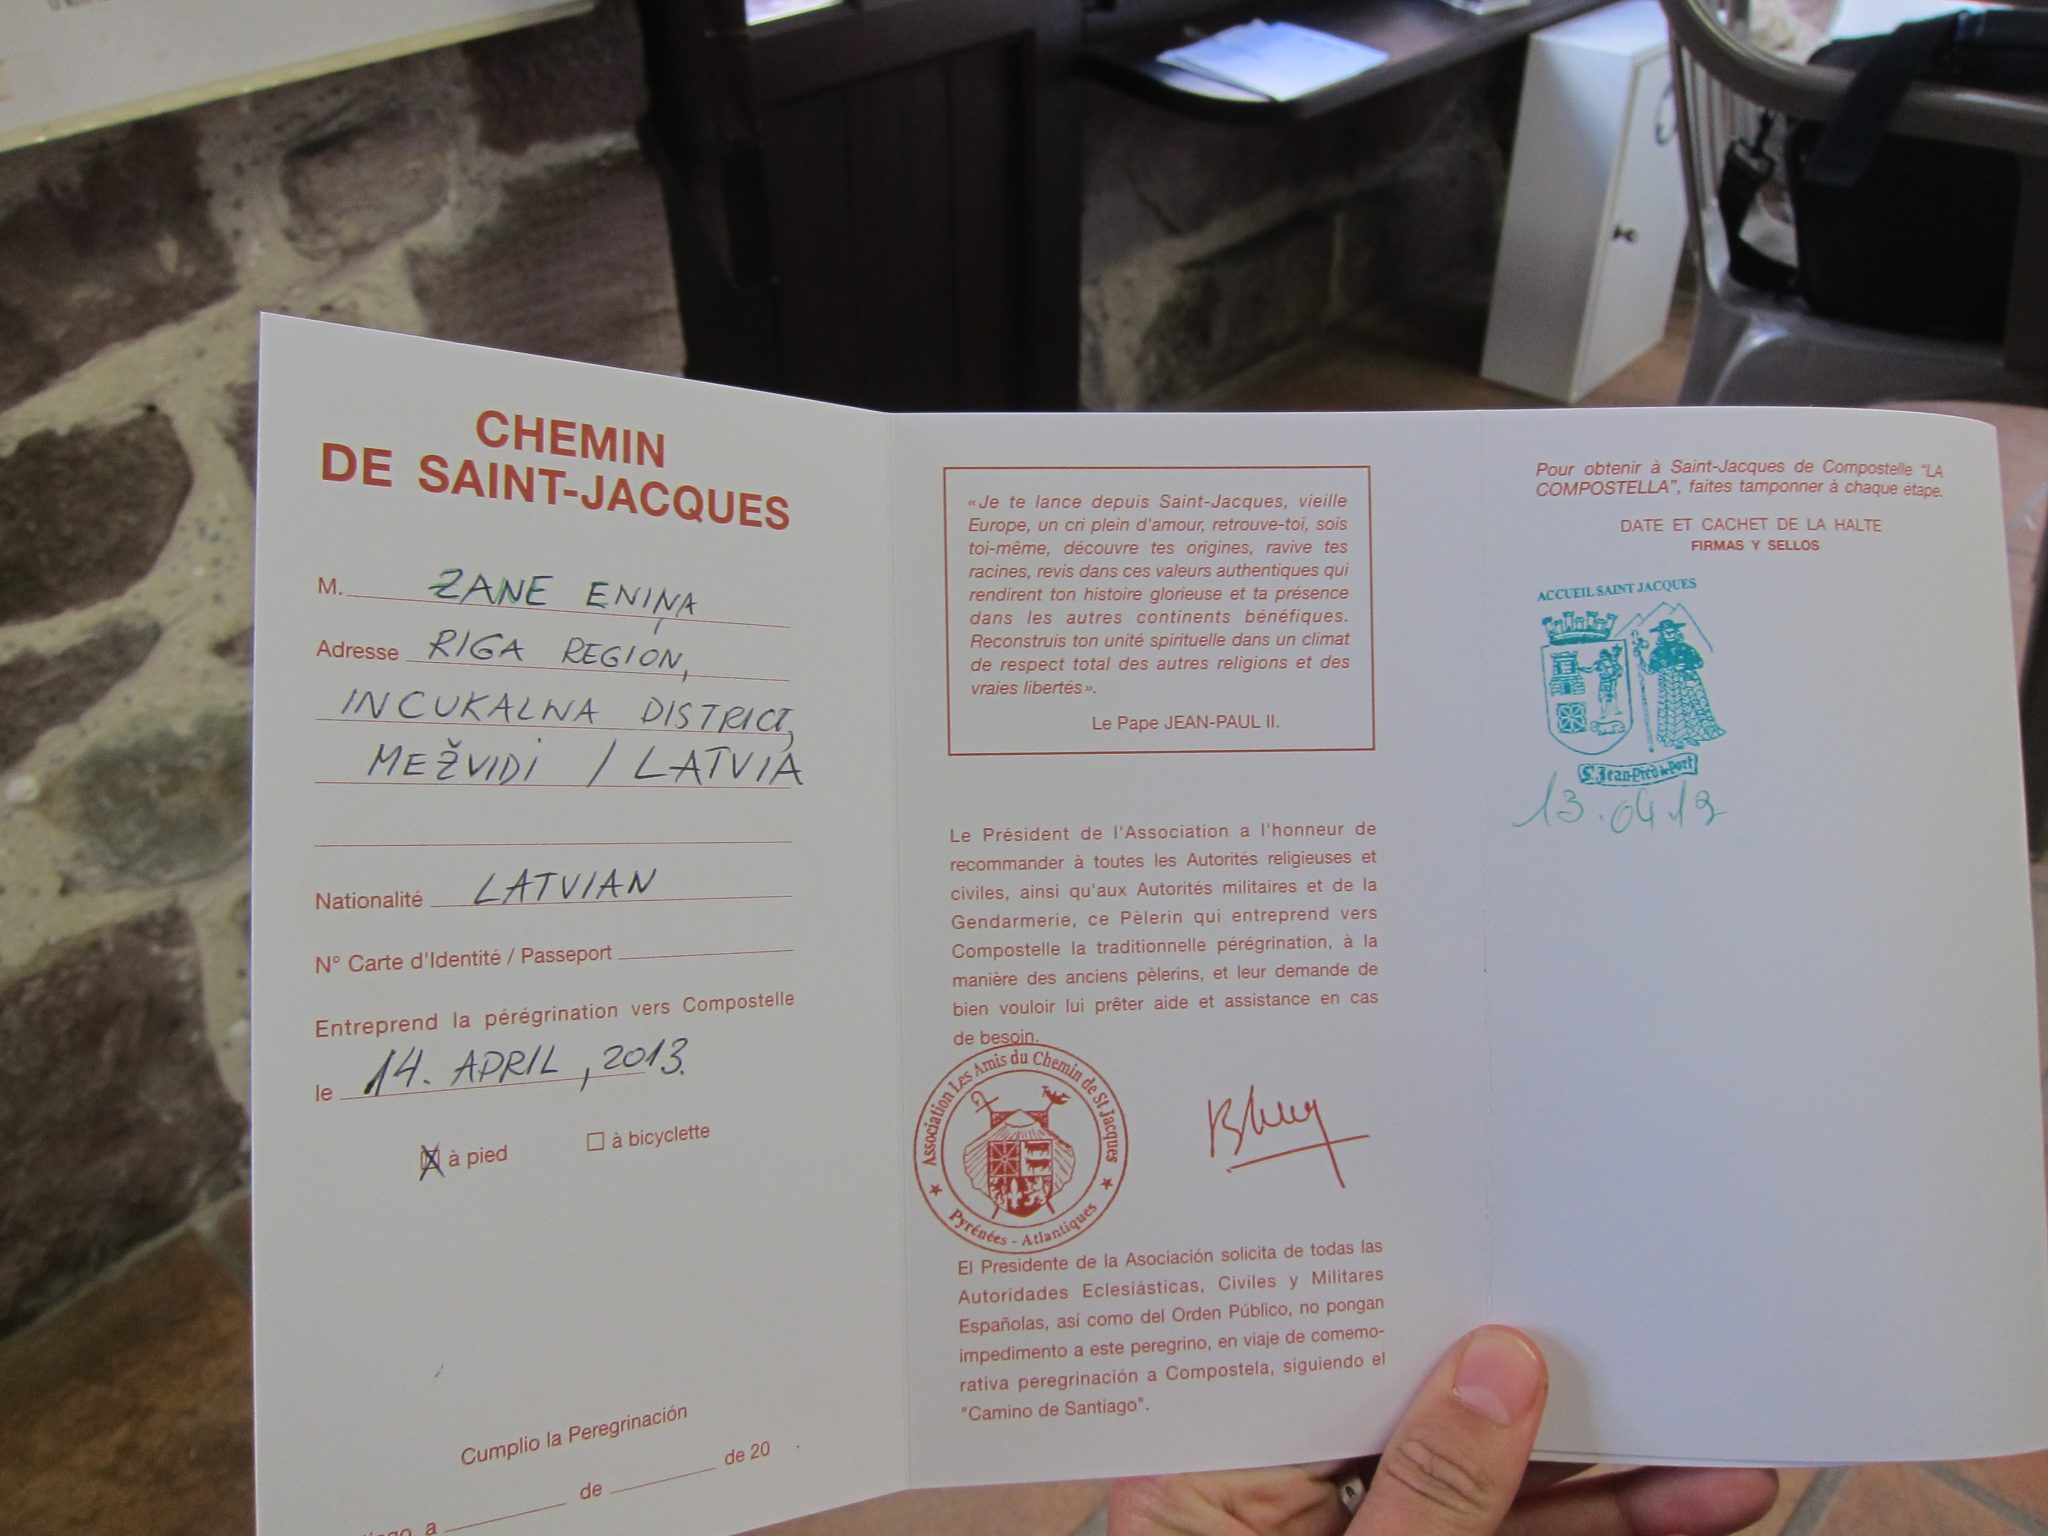 CHEMIN
DE SAINT-JACQUES
M. ZANE ENIŅA
Adresse RIGA REGION,
INCUKALNA DISTRICT,
MEŽVIDI / LATVIA
Nationalité LATVIAN
N° Carte d'Identité / Passeport
Entreprend la pérégrination vers Compostelle
le 14. APRIL, 2013.
à pied à bicyclette
Cumplio la Peregrinación
de de 20
a
«Je te lance depuis Saint-Jacques, vieille
Europe, un cri plein d'amour, retrouve-toi, sois
toi-même, découvre tes origines, ravive tes
racines, revis dans ces valeurs authentiques qui
rendirent ton histoire glorieuse et ta présence
dans les autres continents bénéfiques.
Reconstruis ton unité spirituelle dans un climat
de respect total des autres religions et des
vraies libertés».
Le Pape JEAN-PAUL II.
Le Président de l'Association a l'honneur de
recommander à toutes les Autorités religieuses et
civiles, ainsi qu'aux Autorités militaires et de la
Gendarmerie, ce Pèlerin qui entreprend vers
Compostelle la traditionnelle pérégrination, à la
manière des anciens pèlerins, et leur demande de
bien vouloir lui prêter aide et assistance en cas
de besoin.
Association Les Amis du Chemin de St Jacques
Pyrénées - Atlantiques
El Presidente de la Asociación solicita de todas las
Autoridades Eclesiásticas, Civiles y Militares
Españolas, así como del Orden Público, no pongan
impedimento a este peregrino, en viaje de comemo-
rativa peregrinación a Compostela, siguiendo el
"Camino de Santiago".
Pour obtenir à Saint-Jacques de Compostelle "LA
COMPOSTELLA", faites tamponner à chaque étape.
DATE ET CACHET DE LA HALTE
FIRMAS Y SELLOS
ACCUEIL SAINT JACQUES
St Jean-Pied de Port
13.04.13